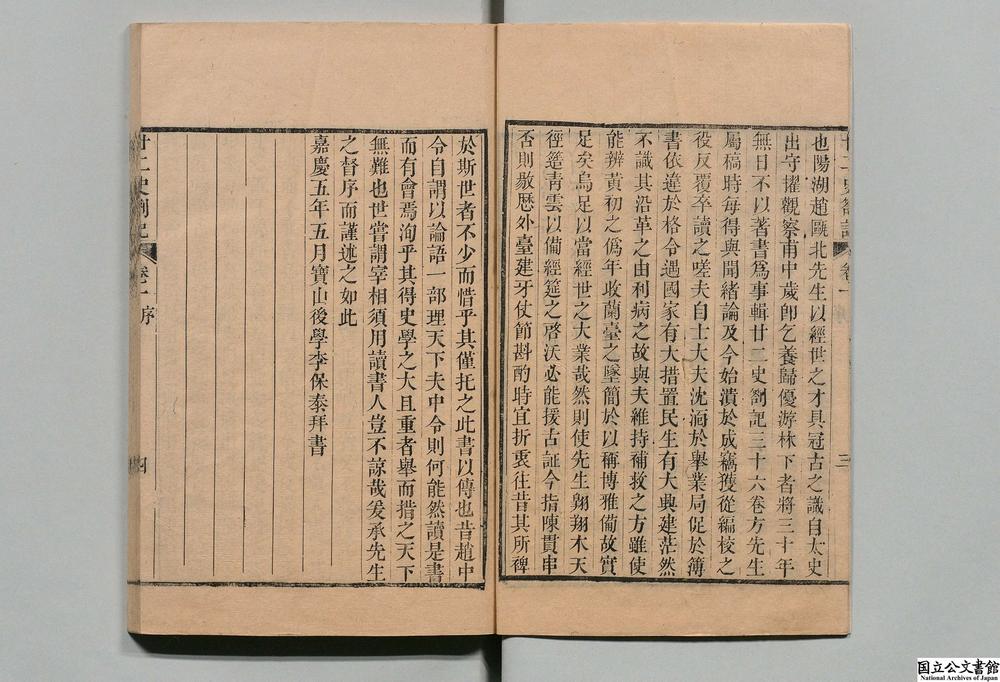 廿二史劄記 卷一 三
也陽湖趙甌北先生以經世之才具冠古之識自太史
出守擢觀察甫中歲卽乞養歸優游林下者將三十年
無日不以著書爲事輯廿二史劄記三十六卷方先生
屬稿時每得與聞緒論及今始潰於成竊獲從編校之
役反覆卒讀之嗟夫自士大夫沈湎於舉業局促於簿
書依違於格令遇國家有大措置民生有大興建茫然
不識其沿革之由利病之故與夫維持補救之方雖使
能辨黃初之僞年收蘭臺之墜簡於以稱博雅備故實
足矣烏足以當經世之大業哉然則使先生翱翔木天
徑簉青雲以備經筵之啓沃必能援古証今指陳貫串
否則敭歷外臺建牙仗節斟酌時宜折衷往昔其所裨
於斯世者不少而惜乎其僅托之此書以傳也昔趙中
令自謂以論語一部理天下夫中令則何能然讀是書
而有會焉洵乎其得史學之大且重者舉而措之天下
無難也世嘗謂宰相須用讀書人豈不諒哉爰承先生
之督序而謹述之如此
嘉慶五年五月寶山後學李保泰拜書
廿二史劄記 卷一序 四
国立公文書館
National Archives of Japan